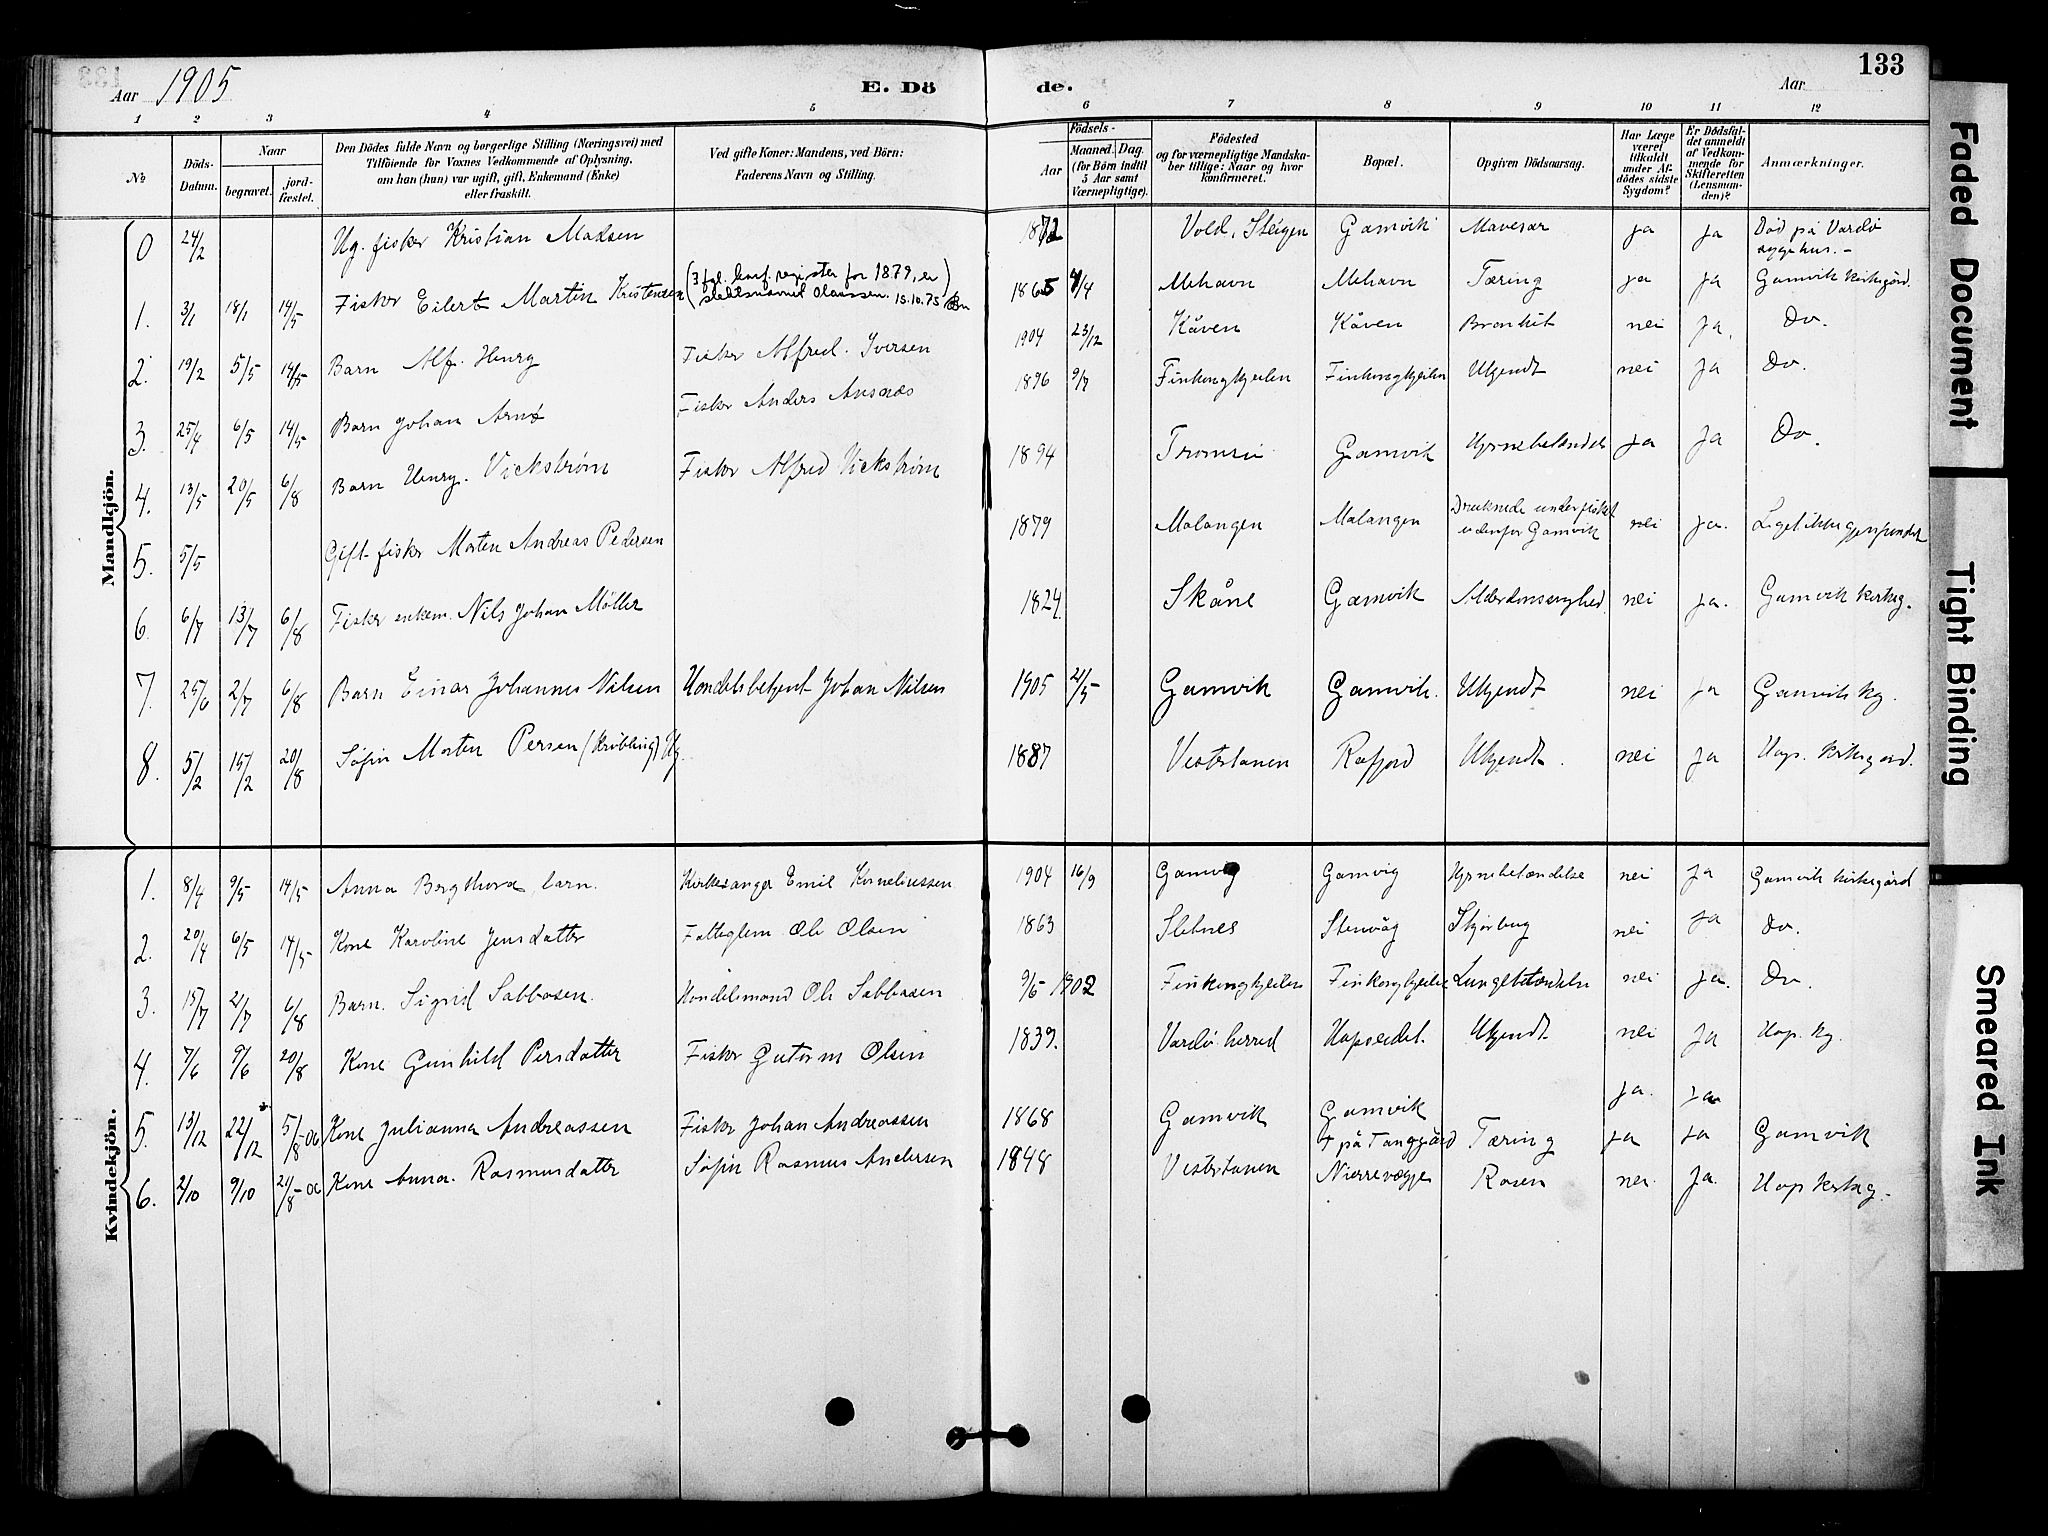 133
Aar 1905
E. Döde.
Aar
1 2 3 4 5 6 7 8 9 10 11 12
No
Döds-Datum.
Naar
begravet.
jord-fæstet.
Den Dödes fulde Navn og borgerlige Stilling (Næringsvei) med
Tilföiende for Voxnes Vedkommende af Oplysning,
om han (hun) var ugift, gift, Enkemand (Enke)
eller fraskilt.
Ved gifte Koner: Mandens, ved Börn:
Faderens Navn og Stilling.
Födsels-
Aar
Maaned. Dag.
(for Börn indtil
5 Aar samt
Værnepligtige).
Födested
og for værnepligtige Mandska-
ber tillige: Naar og hvor
konfirmeret.
Bopæl.
Opgiven Dödsaarsag.
Har Læge
været
tilkaldt
under Af-
dödes sidste
Sygdom?
Er Dödsfal-
det anmeldt
af Vedkom-
mende for
Skifteretten
(Lensman-
den)?
Anmærkninger.
Mandkjön.
0 24/2 Ug. fisker Kristian Madsen 1872 Vold, Steigen Gamvik Mavesår ja ja Död på Vardö sygehus. -
1. 3/1 18/1 14/5 Fisker Eilert Martin Kristensen (I fgl. konf. register for 1879, er slektsnavnet Olaussen. 15.10.75) 1865 4/4 Mehavn Mehavn Tæring ja ja Gamvik kirkegård.
2. 19/2 5/5 14/5 Barn Alf. Henry Fisker Alfred. Iversen 1904 23/12 Kåven Kåven Bronkit nei ja. Do.
3. 25/4 6/5 14/5 Barn Johan Arnt Fisker Anders Ansnæs 1896 9/7 Finkongkjeilen Finkongkjeilen Ukjendt nei ja Do.
4. 13/5 20/5 6/8 Barn Henry. Vickström Fisker Alfred Vickström 1894 Tromsö Gamvik Hjernebetændelse ja ja Do.
5. 5/5 Gift fisker Morten Andreas Pedersen 1879 Malangen Malangen Druknede under fisket udenfor Gamvik nei ja. Liget ikke gjenfundet
6. 6/7 13/7 6/8 Fisker enkem. Nils Johan Möller 1824. Skåne Gamvik Alderdomssvaghed nei ja. Gamvik kirkeg.
7. 25/6 2/7 6/8 Barn Einar Johannes Nilsen Handelsbetjent Johan Nilsen 1905 21/5 Gamvik Gamvik. Ukjendt nei ja Gamvik kg.
8. 5/2 15/2 20/8 Söfin Morten Persen (Kröbling) Ug. 1887 Vestertanen Rafjord Ukjendt. nei ja Hop. kirkegård.
Kvindekjön.
1. 8/4 9/5 14/5 Anna Bergthora, barn. Kirkesanger Emil Korneliussen 1904 16/9 Gamvig Gamvig Hjernebetændelse nei ja Gamvik kirkegård
2. 20/4 6/5 14/5 Kone Karoline Jensdatter Fattiglem Ole Olsen 1863 Sletnes Stenvåg Skjörbug nei ja Do.
3. 15/7 21/7 6/8 Barn. Sigrid Sabbasen. Handelsmand Ole Sabbasen 9/5 1902 Finkongkjeilen Finkongkjeilen Lungebetændelse nei ja. Do.
4. 7/6 9/6 20/8 Kone Gunhild Persdatter Fisker Gutorm Olsen 1839. Vardö herred Hopseidet. Ukjendt. nei ja Hop. kg.
ja. ja
5. 13/12 22/12 5/8-06 Kone Julianna Andreassen Fisker Johan Andreassen 1868 Gamvik Gamvik + på Tanggård Tæring ja ja Gamvik
6. 2/10 9/10 21/8-06 Kone Anna. Rasmusdatter Söfin Rasmus Andersen 1848 Vestertanen Nierrevægge Rosen nei. ja. Hop kirkeg.
Faded Document
Tight Binding
Smeared Ink